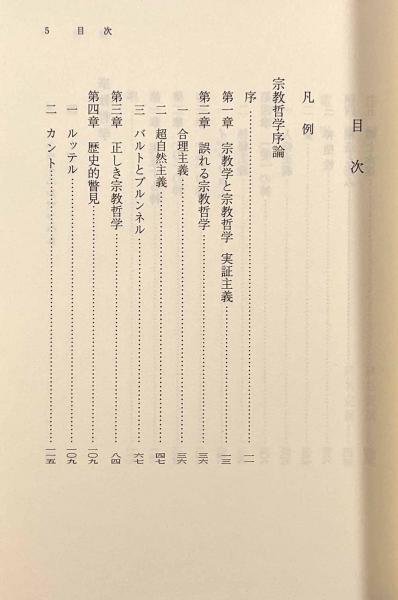 5 目次
目次
凡例
宗教哲学序論
序……一一
第一章 宗教学と宗教哲学 実証主義……一三
第二章 誤れる宗教哲学……三六
一 合理主義……三六
二 超自然主義……四七
三 バルトとブルンネル……六七
第三章 正しき宗教哲学……八四
第四章 歴史的瞥見……一〇九
一 ルッテル……一〇九
二 カント……一二五